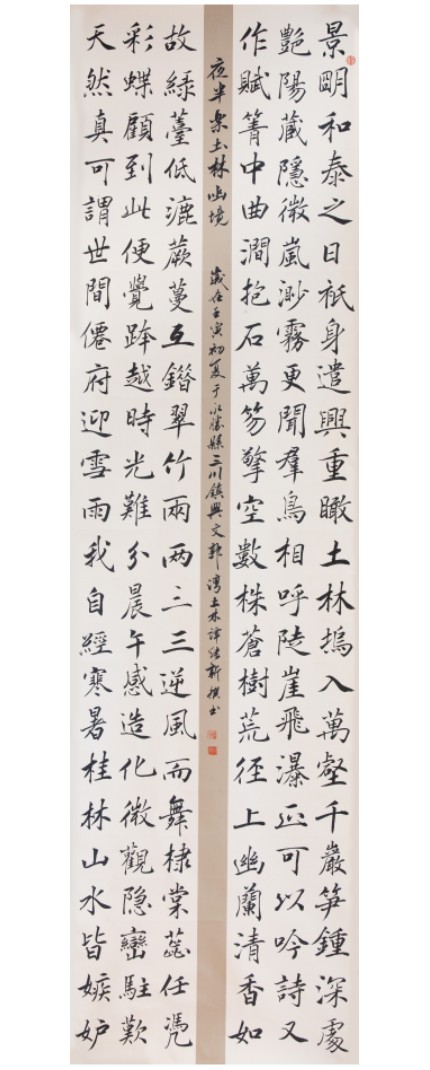 景明和泰之日祇身遣興重瞰土林塢入萬壑千巖笋鍾深處
艷陽蔵隱微嵐渺霧更聞羣鳥相呼陡崖飛瀑正可以吟詩又
作賦箐中曲澗抱石萬笏擎空數株蒼樹荒徑上幽蘭清香如
夜半樂土林幽境 歲在壬寅初夏于永勝縣三川鎮興文郭灣土林譚新撰書
故緑薹低漉蕨蔓互錯翠竹兩两三三逆風而舞棣棠蕋任凴
彩蝶顧到此便覺跨越時光難分晨午感造化微觀隐巒駐歎
天然真可謂世間僊府迎雪雨我自經寒暑桂林山水皆嫉妒